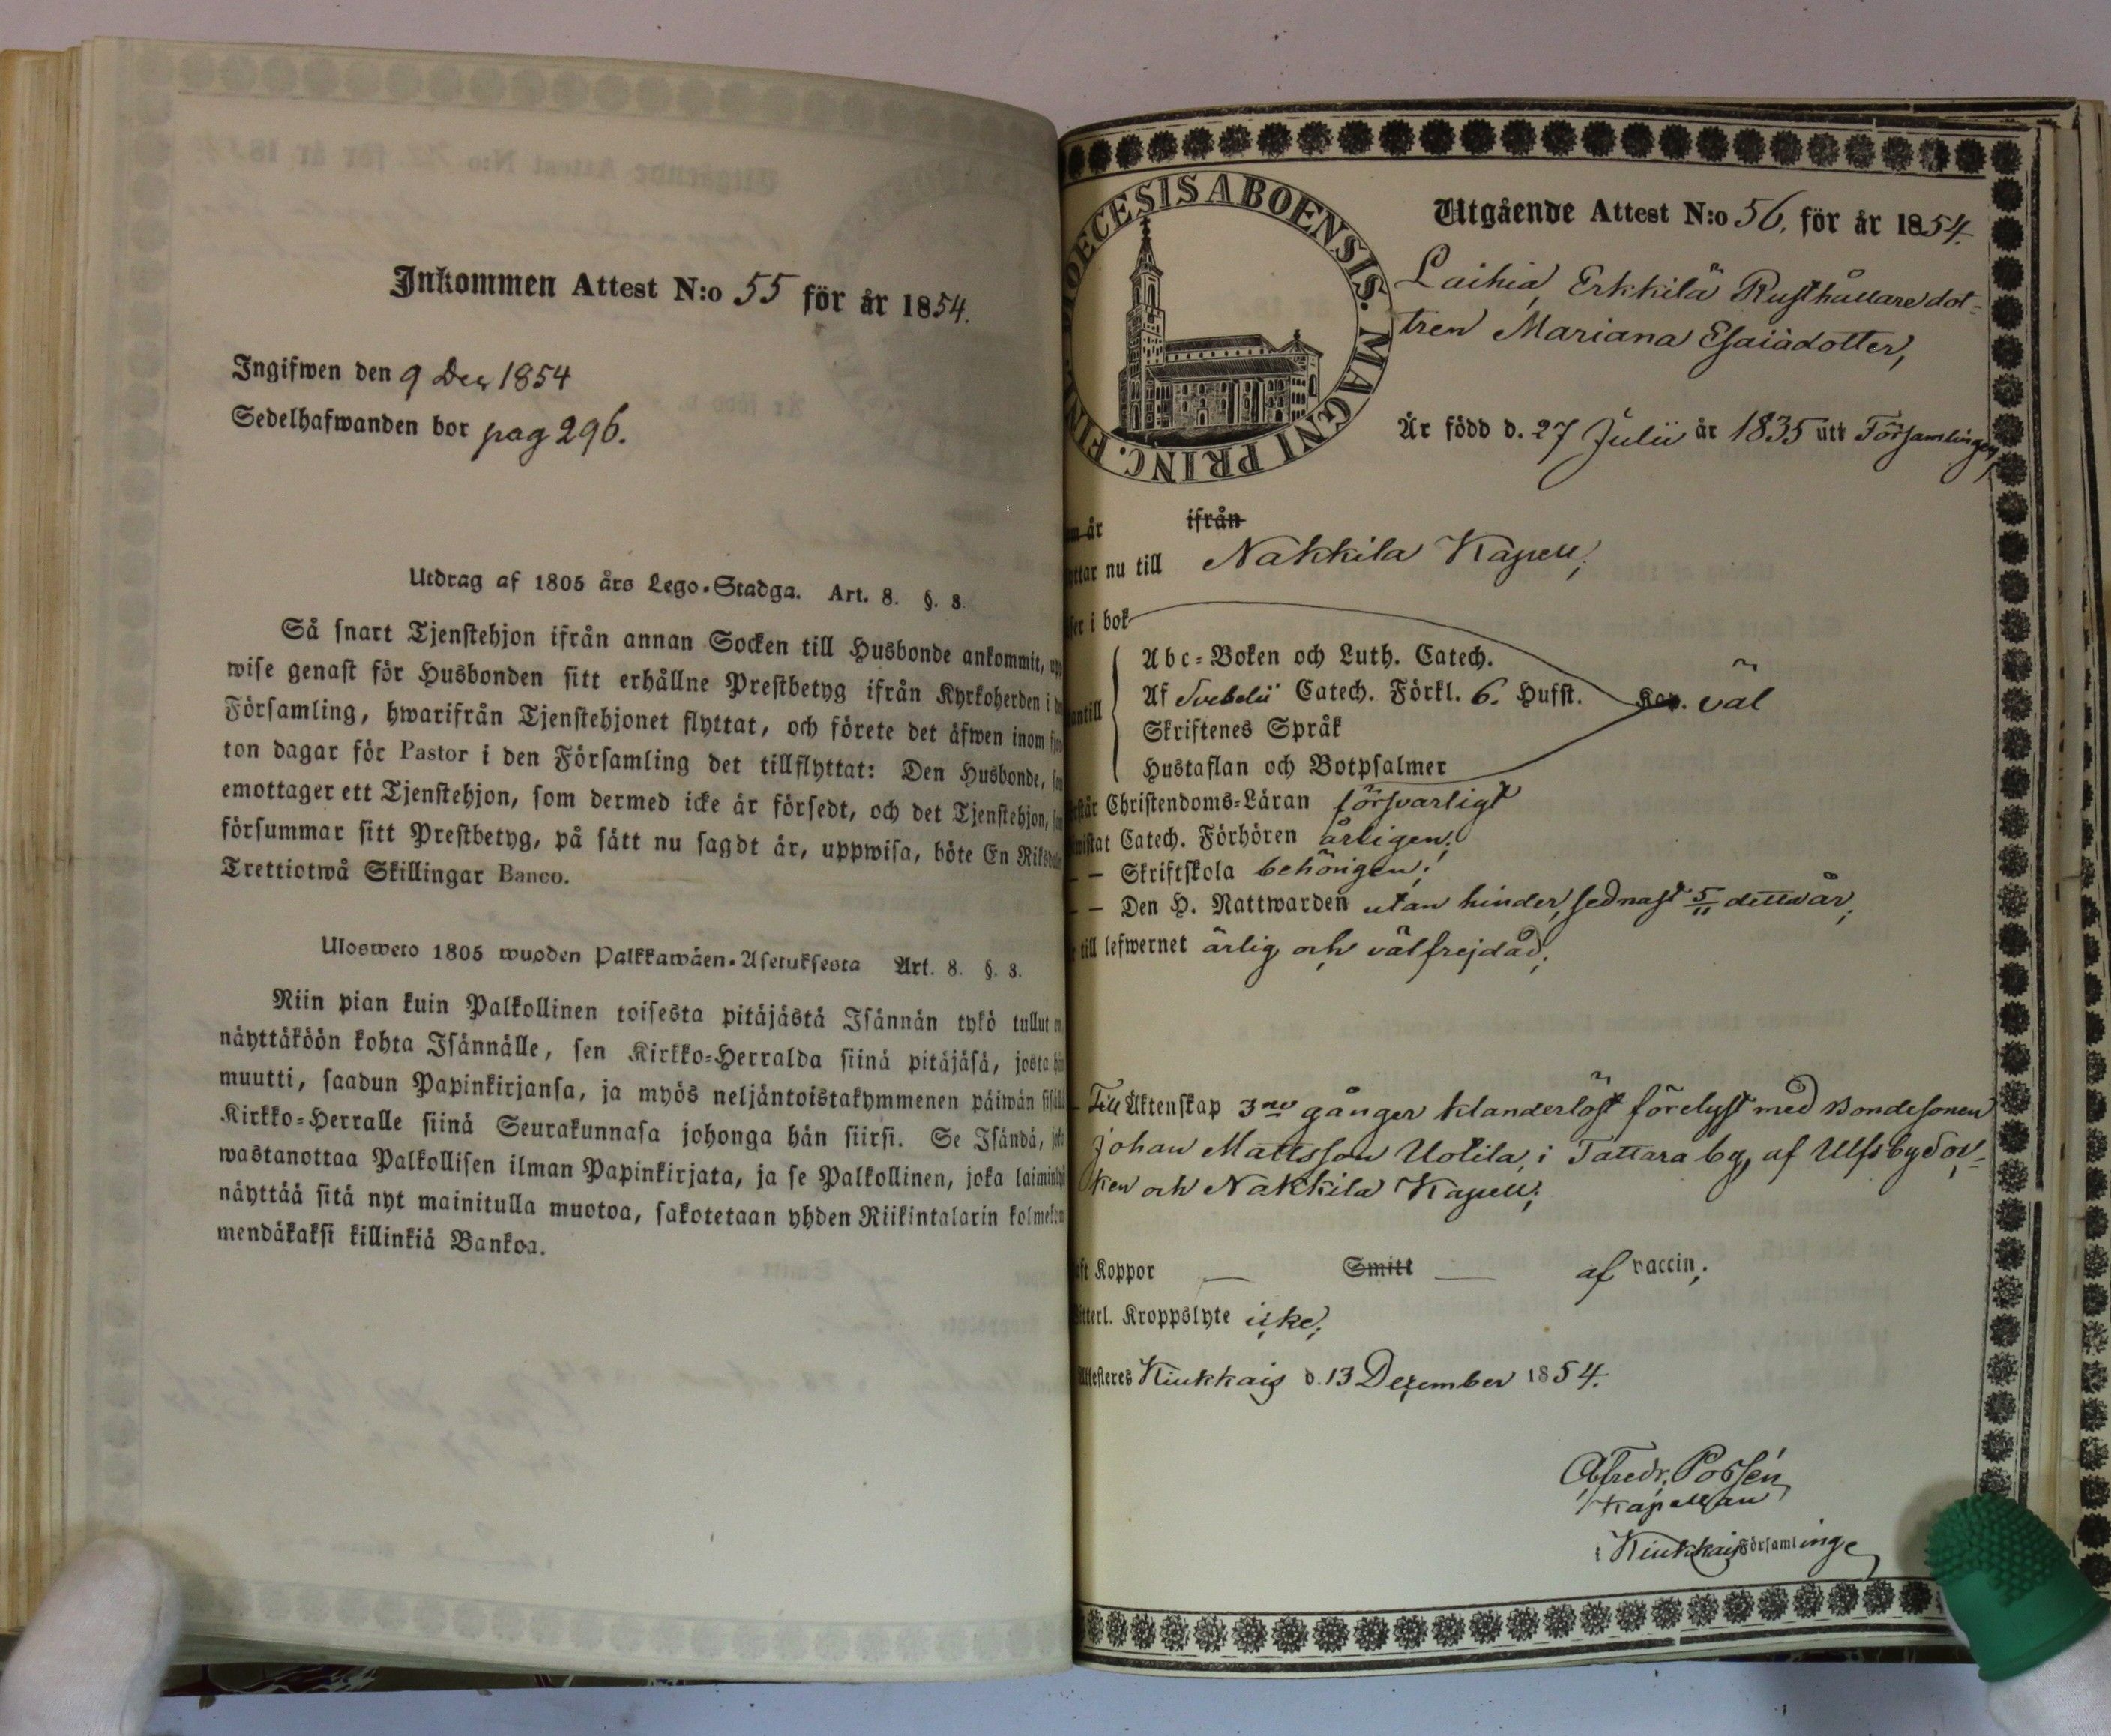 Inkommen Attest N:o 55 för år 1854.
Ingifwen den 9 Dec 1854
Sedelhafwanden bor pag 296.
Utdrag af 1805 års Lego-Stadga. Art. 8. §. 8.
Så snart Tjenstehjon ifrån annan Socken till Husbonde ankommit, upp
wise genast för Husbonden sitt erhållne Prestbetyg ifrån Kyrkoherden i
Församling, hwarifrån Tjenstehjonet flyttat, och förete det äfwen inom
ton dagar för Pastor i den Församling det tillflyttat: Den Husbonde,
emottager ett Tjenstehjon, som dermed icke är försedt, och det Tjenstehjon,
försummar sitt Prestbetyg, på sätt nu sagdt är, uppwisa, böte En Riksdaler
Trettiotwå Skillingar Banco.
Ulosweto 1805 wuoden Palkkawäen-Asetuksesta Art. 8. §. 8.
Niin pian kuin Palkollinen toisesta pitäjästä Isännän tykö tullut on,
näyttäköön kohta Isännälle, sen Kirkko-Herralda siinä pitäjäsä, josta hän
muutti, saadun Papinkirjansa, ja myös neljäntoistakymmenen päiwän sisällä
Kirkko-Herralle siinä Seurakunnasa johonga hän siirsi. Se Isändä, joka
wastanottaa Palkollisen ilman Papinkirjata, ja se Palkollinen, joka laiminlyö
näyttää sitä nyt mainitulla muotoa, sakotetaan yhden Riikintalarin kolmekym
mendäkaksi killinkiä Bankoa.
DIOECESIS ABOENSIS. MAGNI PRINC. FINL.
Utgående Attest N:o 56, för år 1854.
Laihia Erkkilä Rusthållaredot-
tren Mariana Esaiädotter,
Är född d. 27 Julii år 1835 utt Församlingen,
m år ifrån
yttar nu till Nakkila Kapell;
ser i bok
Abc-Boken och Luth. Catech.
Af Svebelii Catech. Förkl. 6. Husst. Kap. väl
antill
Skriftenes Språk
Hustaflan och Botpsalmer
står Christendoms-Läran försvarligt
wistat Catech. Förhören årligen;
— — Skriftskola behörigen;
— — Den H. Nattwarden utan hinder, sednast 5/11 detta år,
till lefwernet ärlig och välfrejdad;
Till Äktenskap 3ne gånger klanderlöst förelyst med Bondesonen
Johan Mattsson Uotila, i Tattara by, af Ulfsby Soc-
ken och Nakkila Kapell;
aft Koppor — Smitt — af vaccin;
itterl. Kroppslyte icke;
Attesteres Kiukkais d. 13 December 1854.
Alfredr. Possén
Kapellan
i Kiukkais Församlinge